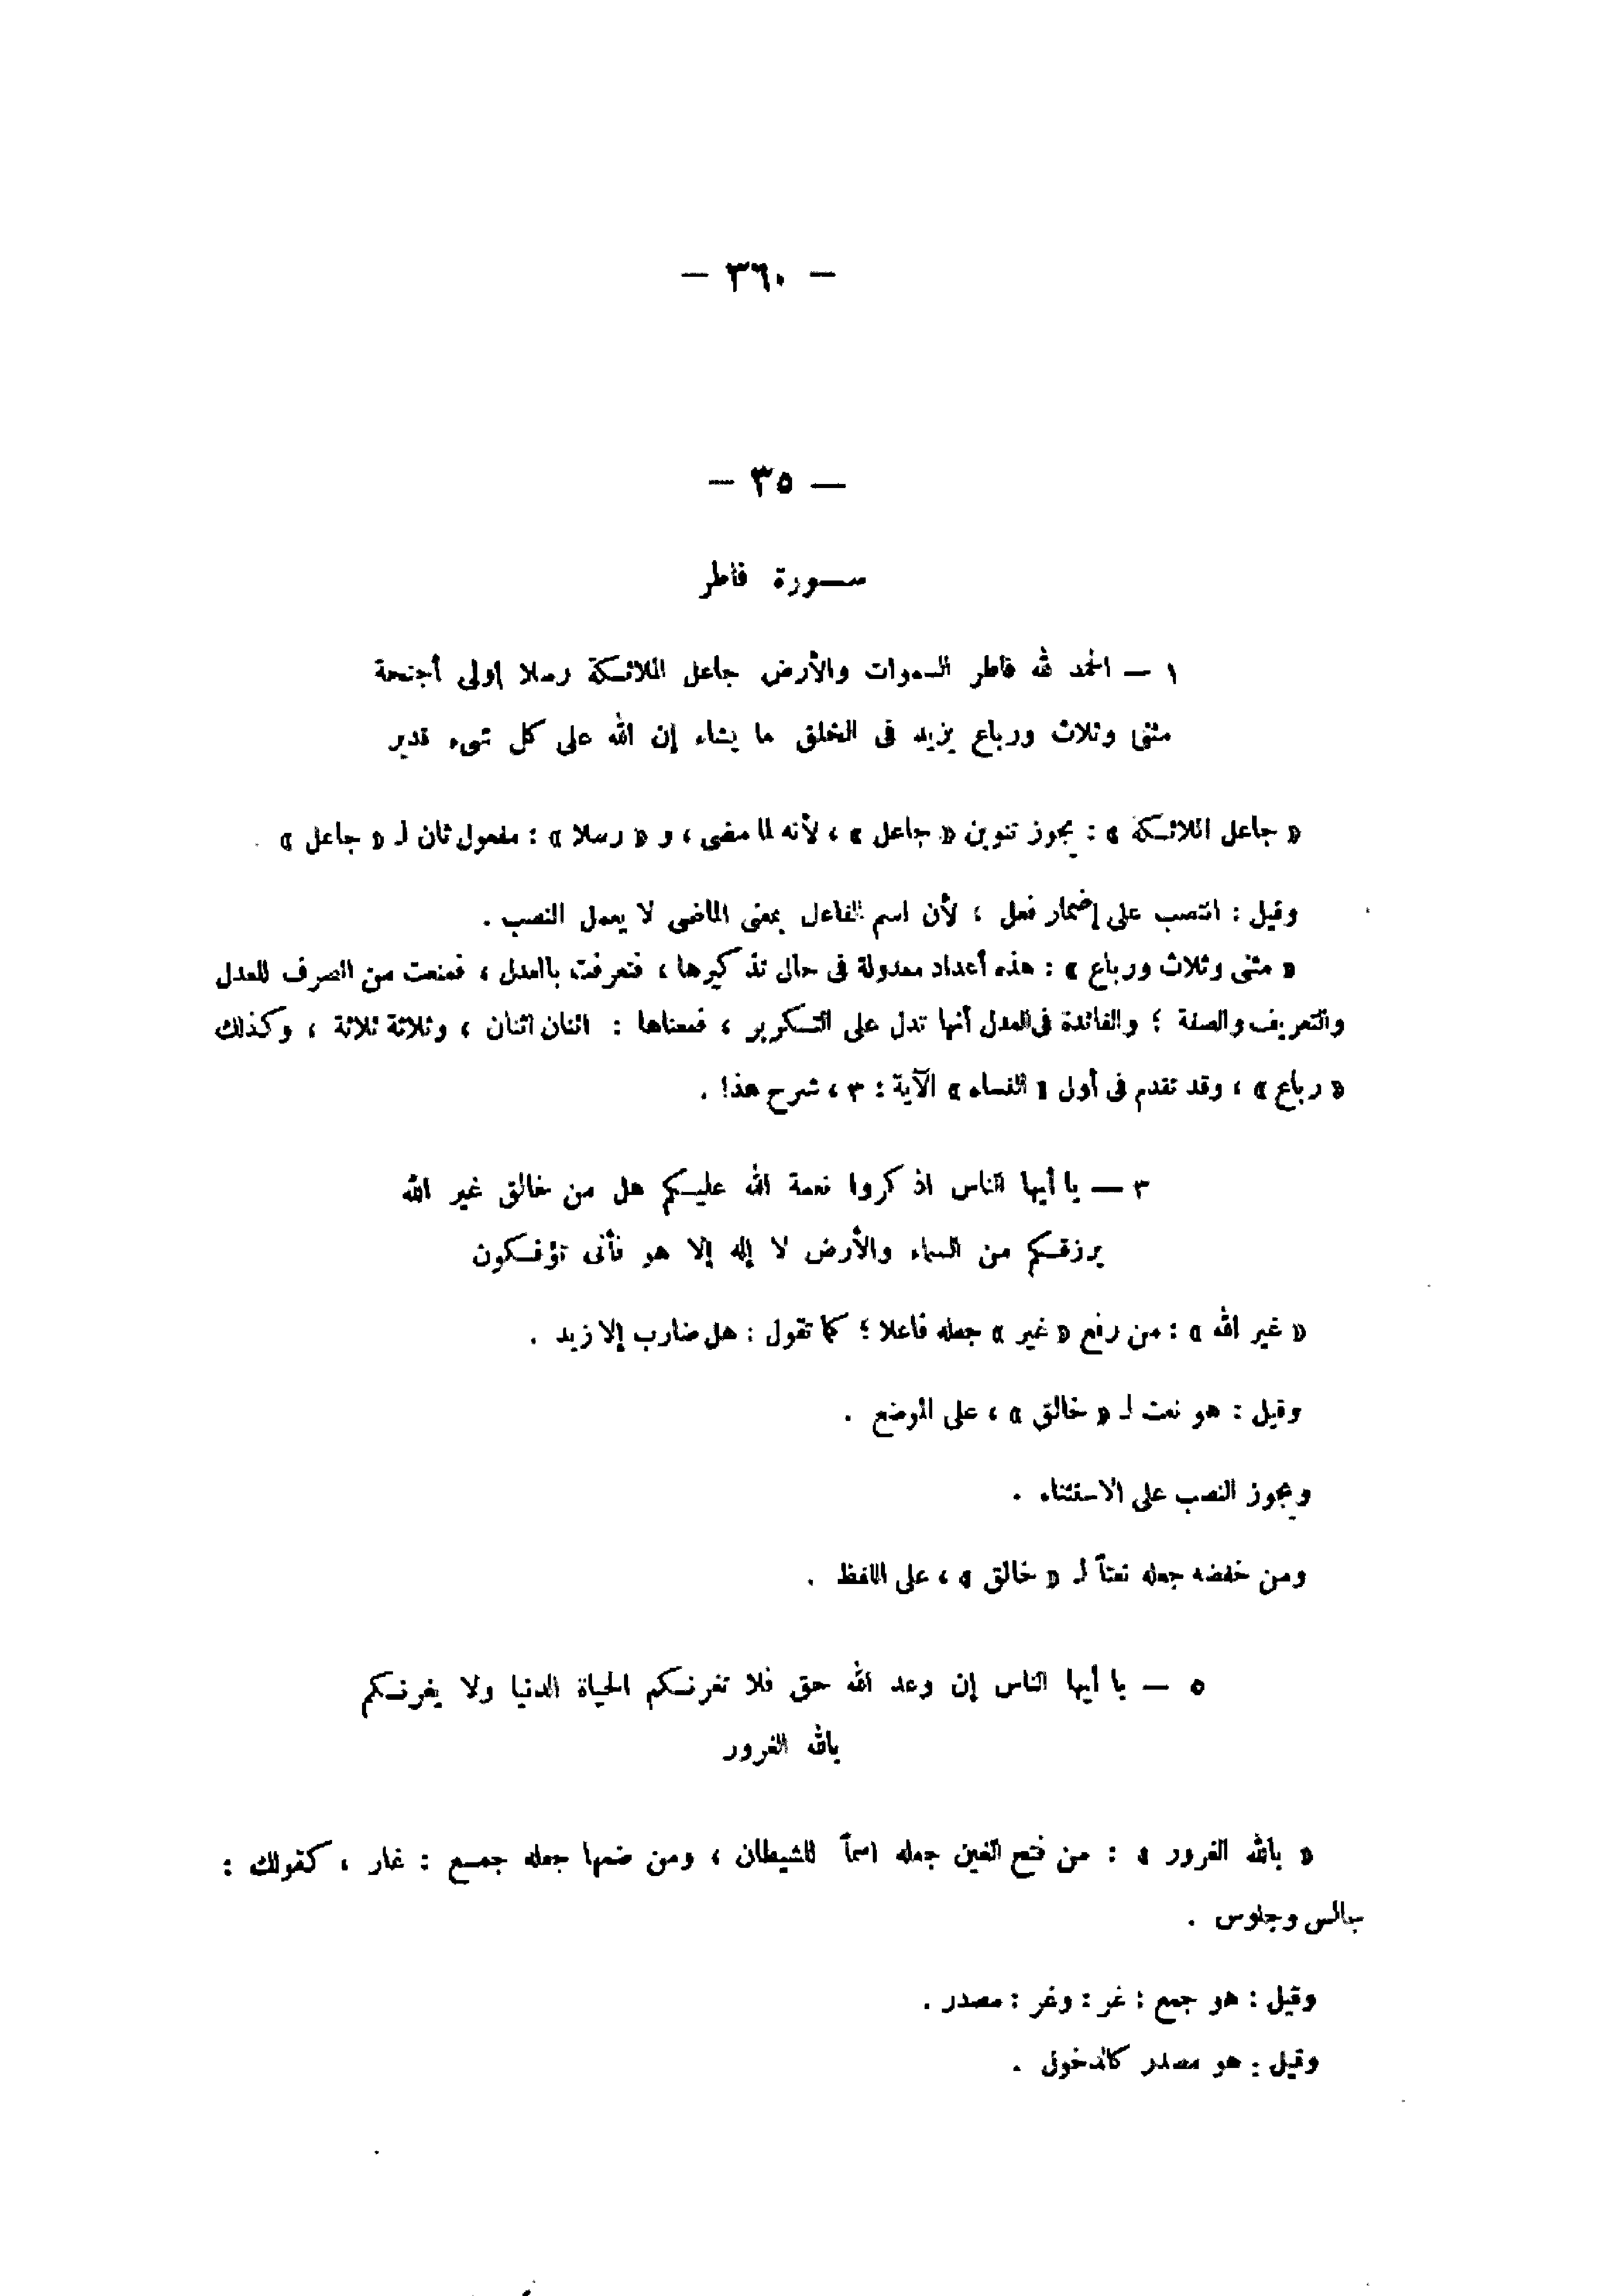 — ٣٦٠ —
— ٣٥ —
ســورة فاطر
١ — الحمد لله فاطر السموات والأرض جاعل الملائكة رسلا أولى أجنحة
مثنى وثلاث ورباع يزيد فى الخلق ما يشاء إن الله على كل شىء قدير
« جاعل الملائكة » : يجوز تنوين « جاعل » ، لأنه لما مضى ، و « رسلا » : مفعول ثان لـ « جاعل » .
وقيل : انتصب على إضمار فعل ؛ لأن اسم الفاعل بمعنى الماضى لا يعمل النصب .
« مثنى وثلاث ورباع » : هذه أعداد معدولة فى حال تذكيرها ، فتعرفت بالعدل ، فمنعت من الصرف للعدل
والتعريف والصفة ؛ والفائدة فى العدل أنها تدل على التكرير ، فمعناها : اثنان اثنان ، وثلاثة ثلاثة ، وكذلك
« رباع » ، وقد تقدم فى أول « النساء » الآية : ٣ ، شرح هذا .
٣ — يا أيها الناس اذكروا نعمة الله عليكم هل من خالق غير الله
يرزقكم من السماء والأرض لا إله إلا هو فأنى تؤفكون
« غير الله » : من رفع « غير » جعله فاعلا ؛ كما تقول : هل ضارب إلا زيد .
وقيل : هو نعت لـ « خالق » ، على الموضع .
ويجوز النصب على الاستثناء .
ومن خفضه جعله نعتاً لـ « خالق » ، على اللفظ .
٥ — يا أيها الناس إن وعد الله حق فلا تغرنكم الحياة الدنيا ولا يغرنكم
بالله الغرور
« بالله الغرور » : من فتح الغين جعله اسماً للشيطان ، ومن ضمها جعله جمع : غار ، كقولك :
جالس وجلوس .
وقيل : هو جمع : غر : وغر : مصدر .
وقيل : هو مصدر كالدخول .